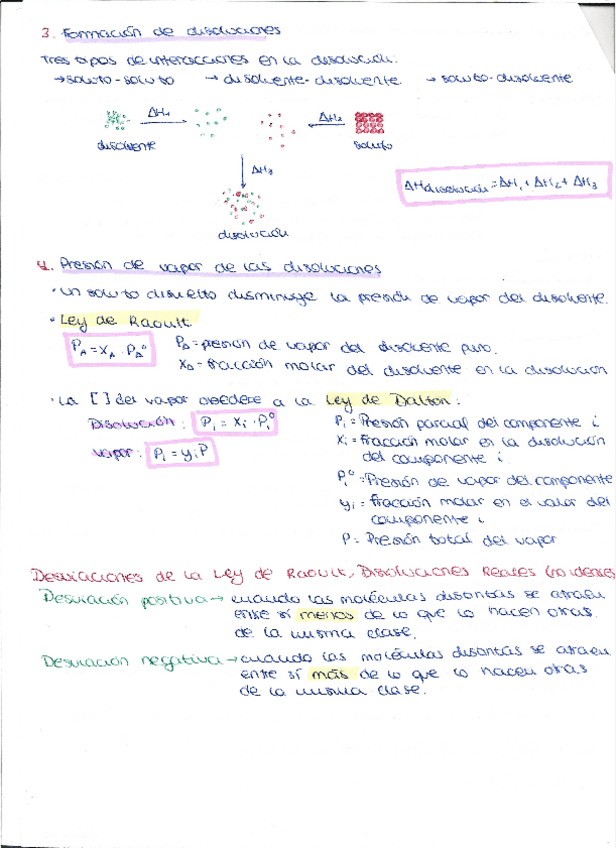 3. Formación de disoluciones
Tres tipos de interacciones en la disolución.
→ soluto-soluto → disolvente-disolvente. → soluto-disolvente
ΔH₁ ΔH₂
disolvente soluto
ΔH₃
ΔHdisolución = ΔH₁ + ΔH₂ + ΔH₃
disolución
4. Presión de vapor de las disoluciones
· Un soluto disuelto disminuye la presión de vapor del disolvente.
· Ley de Raoult
P_A = X_A · P_A° P_A = presión de vapor del disolvente puro.
X_A = fracción molar del disolvente en la disolución
· La [ ] del vapor obedece a la Ley de Dalton:
Disolución: P_i = X_i · P_i° P_i = Presión parcial del componente i
X_i = Fracción molar en la disolución
del componente i
Vapor: P_i = y_i P
P_i° = Presión de vapor del componente
y_i = Fracción molar en el valor del
componente i
P = Presión total del vapor
Desviaciones de la Ley de Raoult, Disoluciones Reales (no ideales
Desviación positiva → cuando las moléculas distintas se atraen
entre sí menos de lo que lo hacen otras
de la misma clase.
Desviación negativa → cuando las moléculas distintas se atraen
entre sí más de lo que lo hacen otras
de la misma clase.